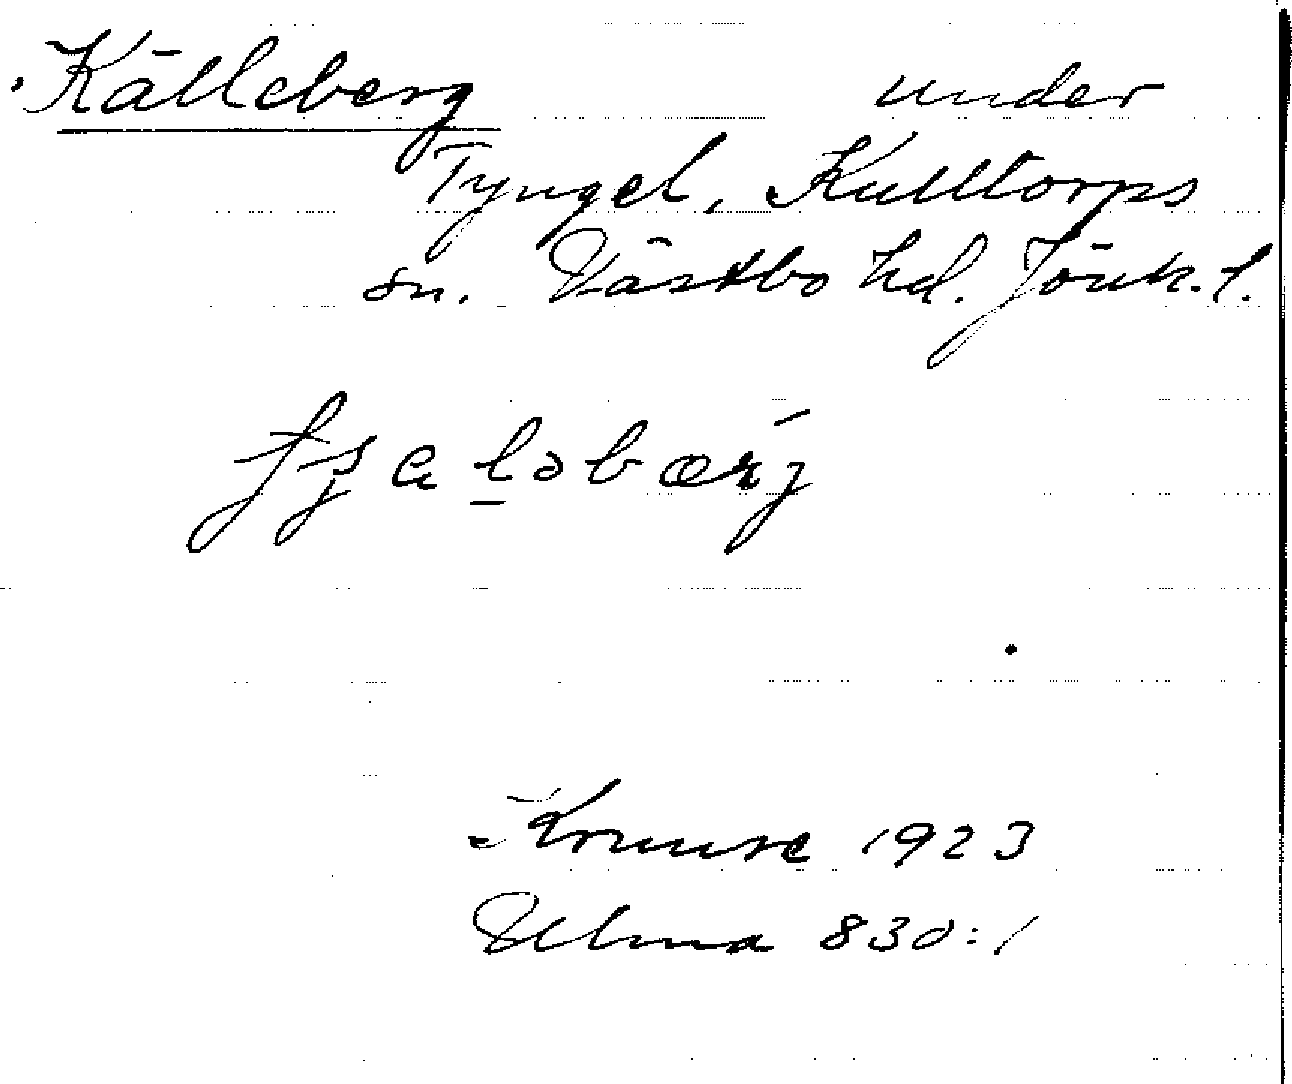 Källeberg under
Tyngel, Kulltorps
sn. Västbo hd. Jönk. l.
Kruuse 1923
Ulma 830:1